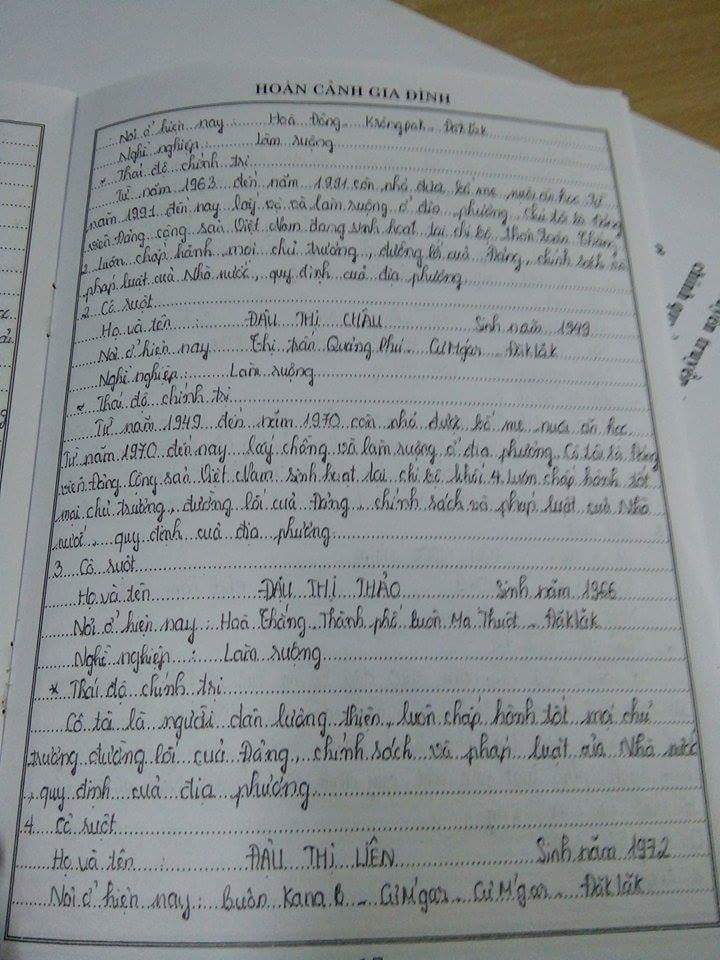 HOÀN CẢNH GIA ĐÌNH
Nơi ở hiện nay : Hoà Đông - Krôngpak - Đăklăk
Nghề nghiệp : Làm ruộng
* Thái độ chính trị
Từ năm 1963 đến năm 1991 còn nhỏ được bố mẹ nuôi ăn học. Từ
năm 1991 đến nay lấy vợ và làm ruộng ở địa phương. Chú tôi là Đảng
viên Đảng cộng sản Việt Nam đang sinh hoạt tại chi bộ thôn
luôn chấp hành mọi chủ trương, đường lối của Đảng, chính sách và
pháp luật của Nhà nước, quy định của địa phương
2. Cô ruột
Họ và tên : ĐẬU THỊ CHÂU Sinh năm 1949
Nơi ở hiện nay : Thị trấn Quảng Phú - CưM'gar - Đăklăk
Nghề nghiệp : Làm ruộng
* Thái độ chính trị
Từ năm 1949 đến năm 1970 còn nhỏ được bố mẹ nuôi ăn học
Từ năm 1970 đến nay lấy chồng và làm ruộng ở địa phương. Cô tôi là Đảng
viên Đảng Cộng sản Việt Nam sinh hoạt tại chi bộ khối 4. Luôn chấp hành tốt
mọi chủ trương, đường lối của Đảng, chính sách và pháp luật của Nhà
nước, quy định của địa phương
3. Cô ruột
Họ và tên ĐẬU THỊ THẢO Sinh năm 1966
Nơi ở hiện nay : Hoà Thắng - Thành phố Buôn Ma Thuột - Đăklăk
Nghề nghiệp : Làm ruộng
* Thái độ chính trị
Cô tôi là người dân lương thiện, luôn chấp hành tốt mọi chủ
trương đường lối của Đảng, chính sách và pháp luật của Nhà nước
, quy định của địa phương
4. Cô ruột
Họ và tên : ĐẬU THỊ LIÊN Sinh năm 1972
Nơi ở hiện nay : Buôn Kana B - CưM'gar - Cư M'gar - Đăklăk